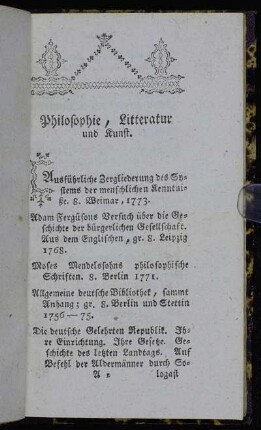 Philosophie, Litteratur
und Kunst.
Ausführliche Zergliederung des Sy-
stems der menschlichen Kenntni-
ße. 8. Weimar, 1773.
Adam Fergusons Versuch über die Ge-
schichte der bürgerlichen Gesellschaft.
Aus dem Englischen, gr. 8. Leipzig
1768.
Moses Mendelssohns philosophische
Schriften. 8. Berlin 1771.
Allgemeine deutsche Bibliothek, sammt
Anhang; gr. 8. Berlin und Stettin
1756—75.
Die deutsche Gelehrten Republik. Ih-
re Einrichtung. Ihre Gesetze. Ge-
schichte des letzten Landtags. Auf
Befehl der Aldermänner durch Sa-
A 2 logast